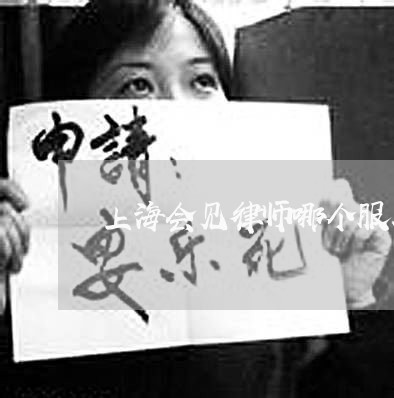 申請：
上海会见律师哪个服
要乐死